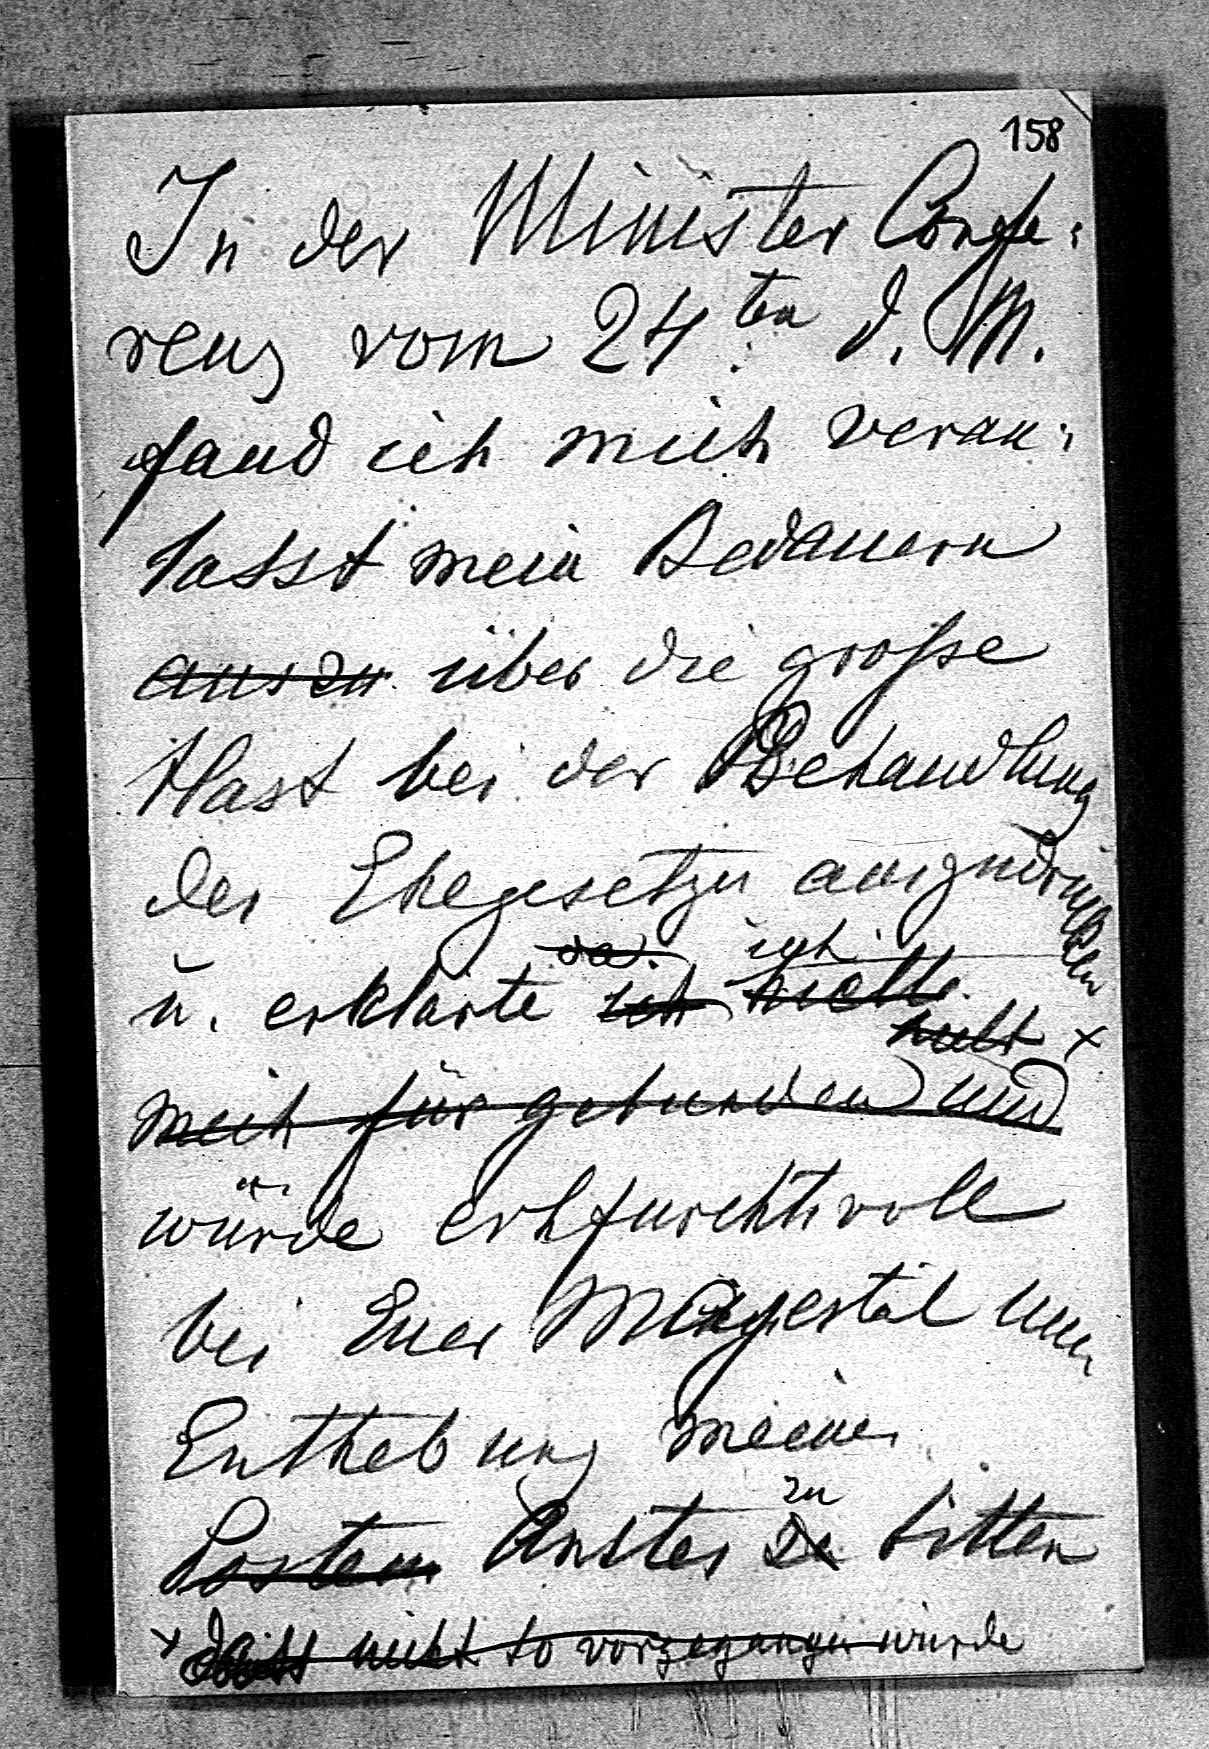 158
In der Minister Confe:
renz vom 24ten d. M.
fand ich mich veran:
lasst mein Bedauern
auszu über die große
Hast bei der Behandlung
des Ehegesetzes auszudrücken
da ich
u. erklärte ich
nicht x
mich für gebunden und
würde erhfurchtsvoll
bei Euer Majestät um
Enthebung meines
zu
Postens Amtes zu bitten
x dass nicht so vorgegangen würde